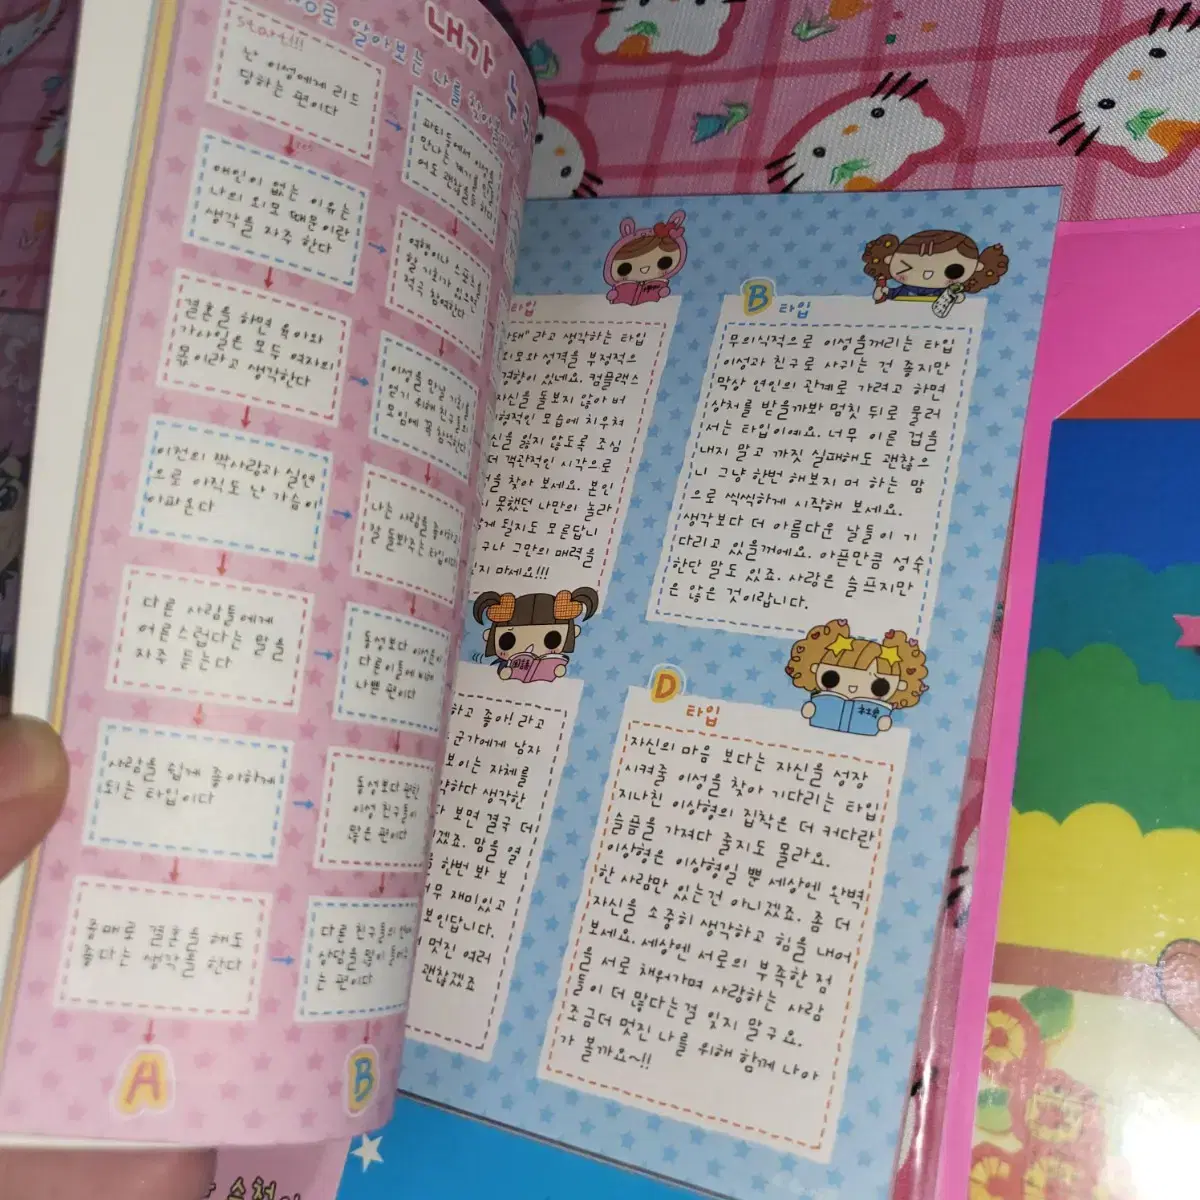 내가
로 알아보는 나를
start!!!
난 이성에게 리드
당하는 편이다
yes
애인이 없는 이유는
나의 외모 때문이란
생각을 자주 한다
결혼을 하면 육아와
가사일은 모두 여자의
몫이라고 생각한다
이전의 짝사랑과 실연
으로 아직도 난 가슴이
아파온다
다른 사람들에게
어른스럽다는 말을
자주 듣는다
사람을 쉽게 좋아하게
되는 타입이다
A
파티등에서 이성을
여행이나 스포츠를
할 기회가 있으면
자주 참여한다
이성을 만날 기회를
얻기 위해 친구
모임에
나는 사람을
동성보다 이성들이
다른 이들에 비해
나쁜 편이다
동성보다 편한
이성 친구들이
많은 편이다
B
타입
돼" 라고 생각하는 타입
외모와 성격을 부정적으
경향이 있네요. 컴플랙스
자신을 돌보지 않아 버
형적인 모습에 치우쳐
신을 잃지 않도록 조심
더 객관적인 시각으로
찾아 보세요. 본인
못했던 나만의 놀라
게 될지도 모른답니
구나 그만의 매력을
지 마세요!!!
B 타입
무의식적으로 이성을꺼리는 타입
이성과 친구로 사귀는 건 좋지만
막상 연인의 관계로 가려고 하면
상처를 받을까봐 멈칫 뒤로 물러
서는 타입이예요. 너무 이른 겁을
내지 말고 까짓 실패해도 괜찮으
니 그냥 한번 해보지 머 하는 맘
으로 씩씩하게 시작해 보세요.
생각보다 더 아름다운 날들이 기
다리고 있을꺼에요. 아픈만큼 성숙
한단 말도 있죠. 사랑은 슬프지만
은 않은 것이랍니다.
国語
하고 좋아! 라고
군가에게 남자
보이는 자체를
약하다 생각한
다 보면 결국 더
겠죠. 맘을 열
한번 봐 보
너무 재미있고
보인답니다.
멋진 여러
괜찮겠죠
D 타입
자신의 마음 보다는 자신을 성장
시켜줄 이성을 찾아 기다리는 타입
지나친 이상형의 집착은 더 커다란
슬픔을 가져다 줄지도 몰라요.
이상형은 이상형일 뿐 세상엔 완벽
한 사람만 있는건 아니겠죠. 좀 더
자신을 소중히 생각하고 힘을 내어
보세요. 세상엔 서로의 부족한 점
을 서로 채워가며 사랑하는 사람
들이 더 많다는걸 잊지 말구요.
조금더 멋진 나를 위해 함께 나아
가 볼까요~!!